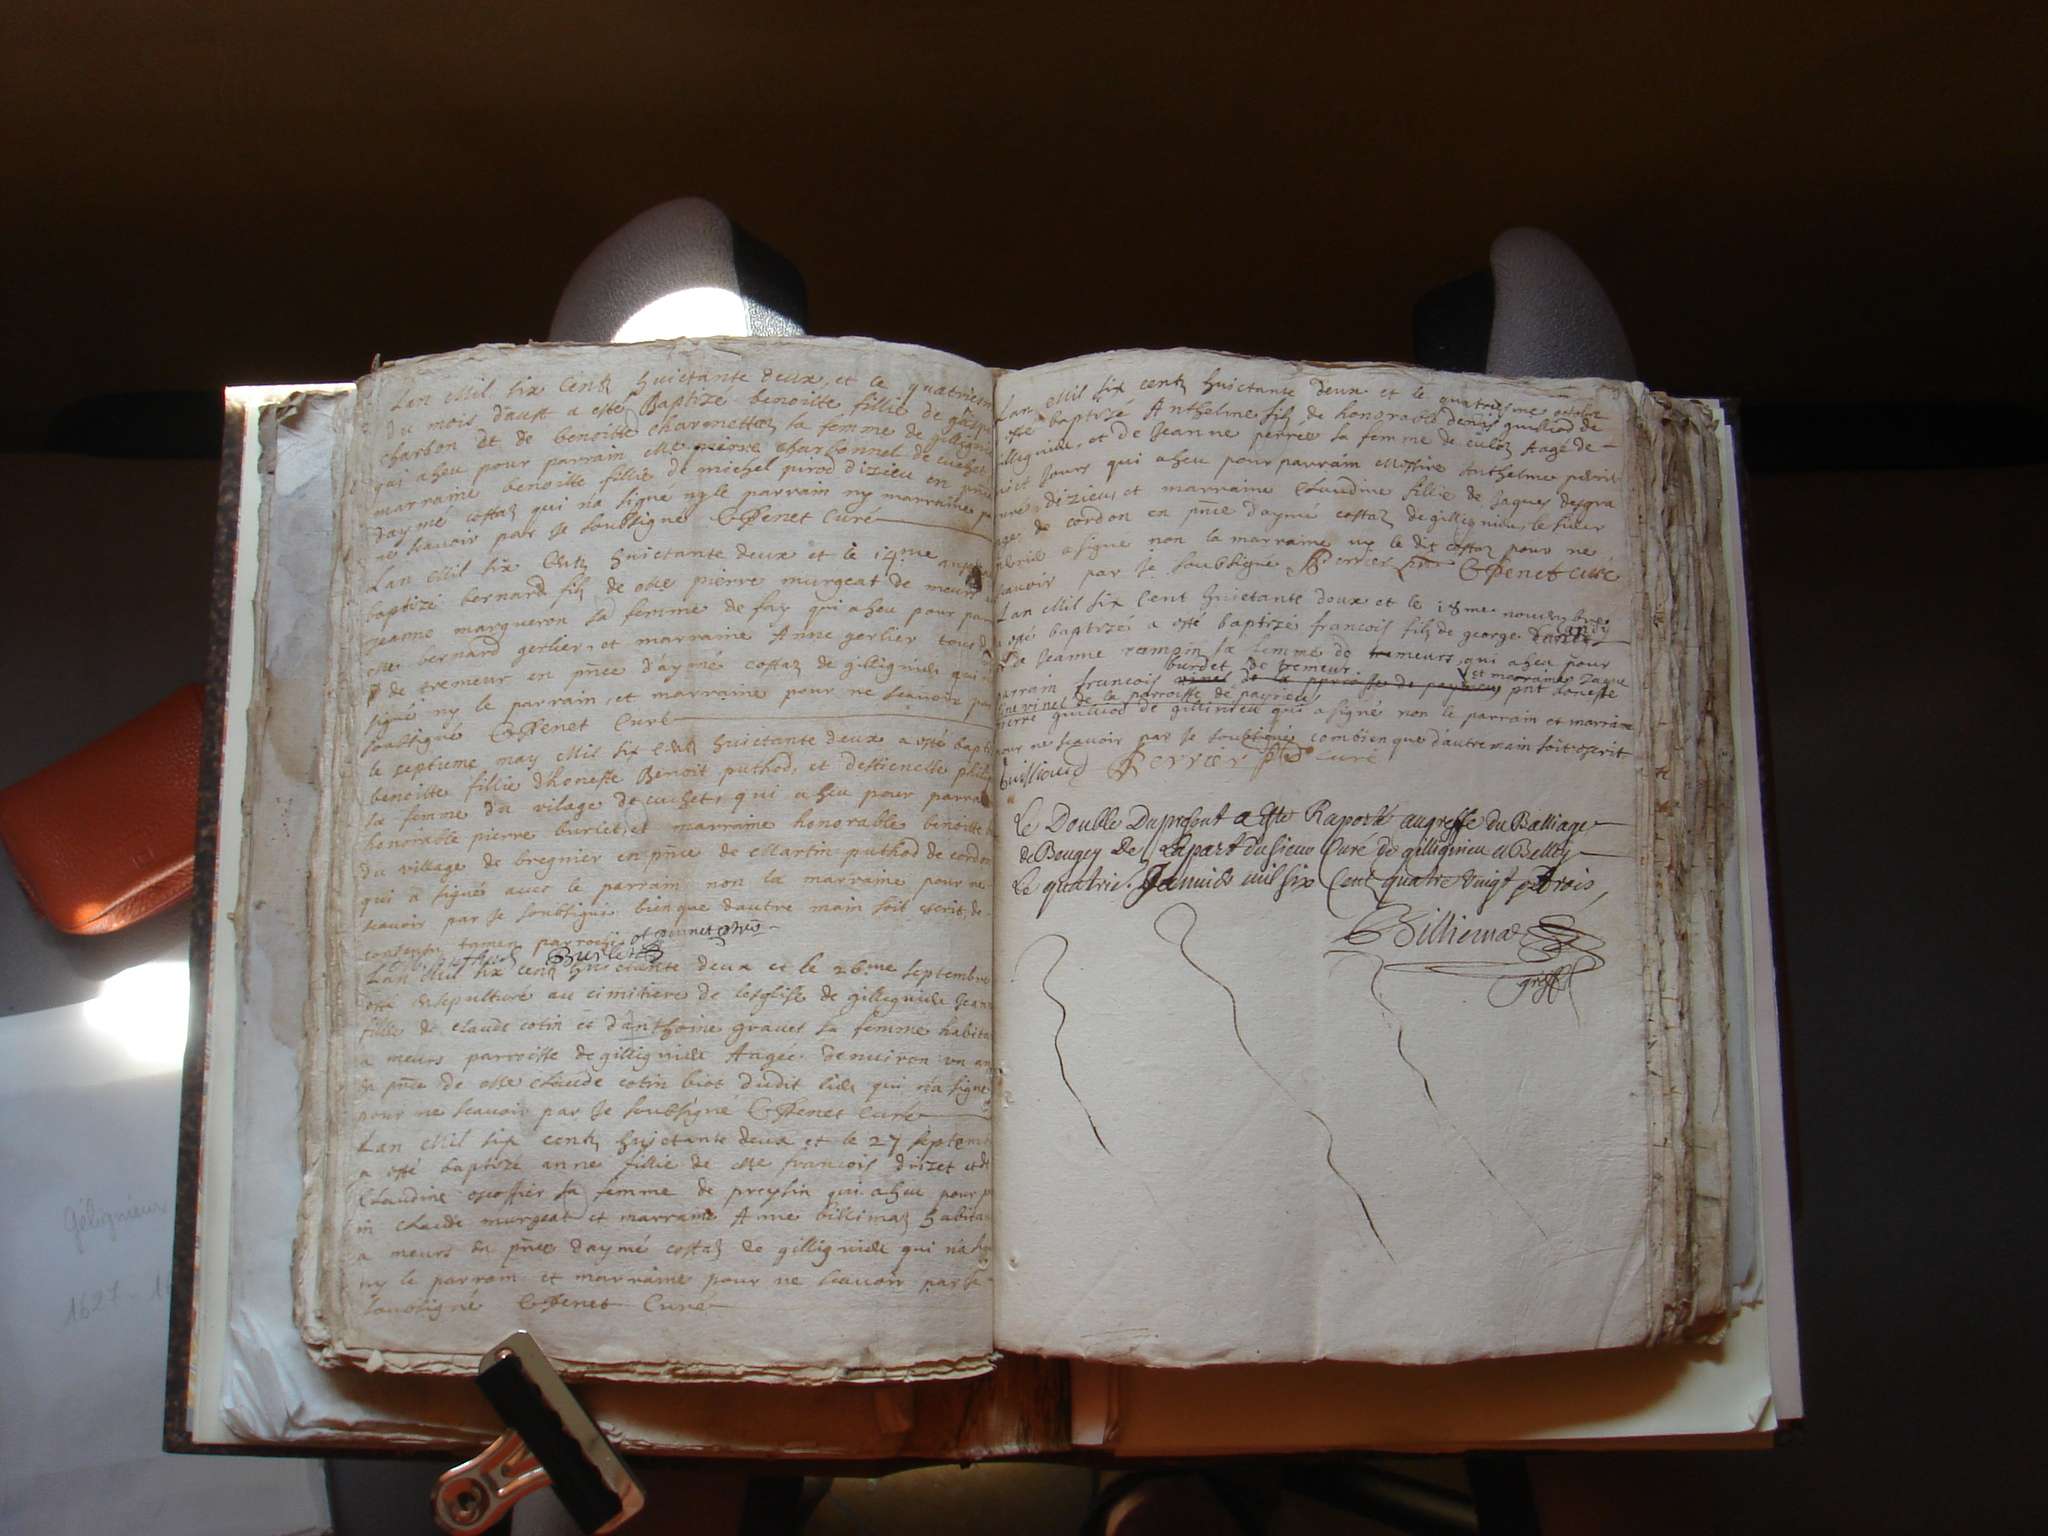 Lan Mil six Centz huictante deux, et le quatriesm
du mois daust a esté Baptizé benoitte fillie de gaspa
charbon et de benoitte charmettaz sa femme de gillignie
qui a heu pour parrain Me pierre charbonnel de cuchet
marraine benoitte fillie de michel pirod dizieu en pnce
daymé costaz qui n'a signé ny le parrain ny marraine po
ne scavoir par Je soubsigné Penet Curé
Lan Mil six Centz huictante deux et le 14me aust
baptizé bernard filz de Me pierre murgeat de meurs
Jeanne margueron sa femme de fay qui a heu pour par
Me bernard gerlier, et marraine Anne gerlier tous d
de tremeur en pnce d'aymé costaz de gillignieu qui
signé ny le parrain, et marraine pour ne scavoir par
soubsigné Penet Curé
le septieme may Mil six centz huictante deux a esté bapti
benoitte fillie dhoneste Benoit puthod, et destienette phili
sa femme du vilage de cuchet, qui a heu pour parra
honorable pierre burlet, et marraine honorable benoitte
du village de bregnier en pnce de Martin puthod de cordon
qui a signé avec le parrain non la marraine pour ne
scavoir par Je soubsigné bien que dautre main soit escrit, de
consensu tamen parrochi
Burlet
Lan Mil six centz huictante deux et le 26me septembre
esté ensepulturé au cimitiere de lesglise de gillignieu Jean
fillie de claude cotin et d'anthoine gravet sa femme habita
a meurs parroisse de gillignieu Aagée denviron un an
en pnce de Me claude cotin biot dudit lieu qui n'a signé
pour ne scavoir par Je soubsigné Penet Curé
Lan Mil six centz huictante deux et le 27 septem
a esté baptizé anne fillie de Me francois drizet et d
Claudine escoffier sa femme de preysin qui a heu pour p
in claude murgeat et marraine Anne billimaz habita
a meurs en pnce daymé costaz de gillignieu qui n'a sig
ny le parrain et marraine pour ne scavoir par Je
soubsigné Penet Curé
Lan Mil six centz huictante deux et le quatriesme octobre
esté baptizé Anthelme filz de honorable denis guilliod de
illignieu, et de Jeanne perrée sa femme de culoz Aagé de
huict Jours qui a heu pour parrain Messire Anthelme
cure dizieu, et marraine Claudine fillie de Jaques desgra
ges de cordon en pnce daymé costaz de gillignieu, le sieur
a signé non la marraine ny le dit costaz pour ne
scavoir par Je soubsigné Perrier Penet curé
Lan Mil six Cent huictante deux et le 18me novembre
a esté baptizé a esté baptizé francois filz de george Candy
de Jeanne ramoin sa femme de meurs, qui a heu pour
burdet de tremeur et marraine Jaque
parrain francois vinet de la parroisse de peyrieu pnt honeste
line vinet de la parroisse de payrieu
pierre guilliod de gillinieu qui a signé non le parrain et marraine
pour ne scavoir par Je soubsigné combien que d'autre main soit escrit
Guillioud Perrier curé
Le Double Du present a este Raporté au greffe du Balliage
de Bougey De Lapart du sieur Curé de gillignieu a Belley
Le quatrie. Janvier mil six Cent quatre vingt et trois,
Billiemaz
greff
Gélignieux
1627 - 1